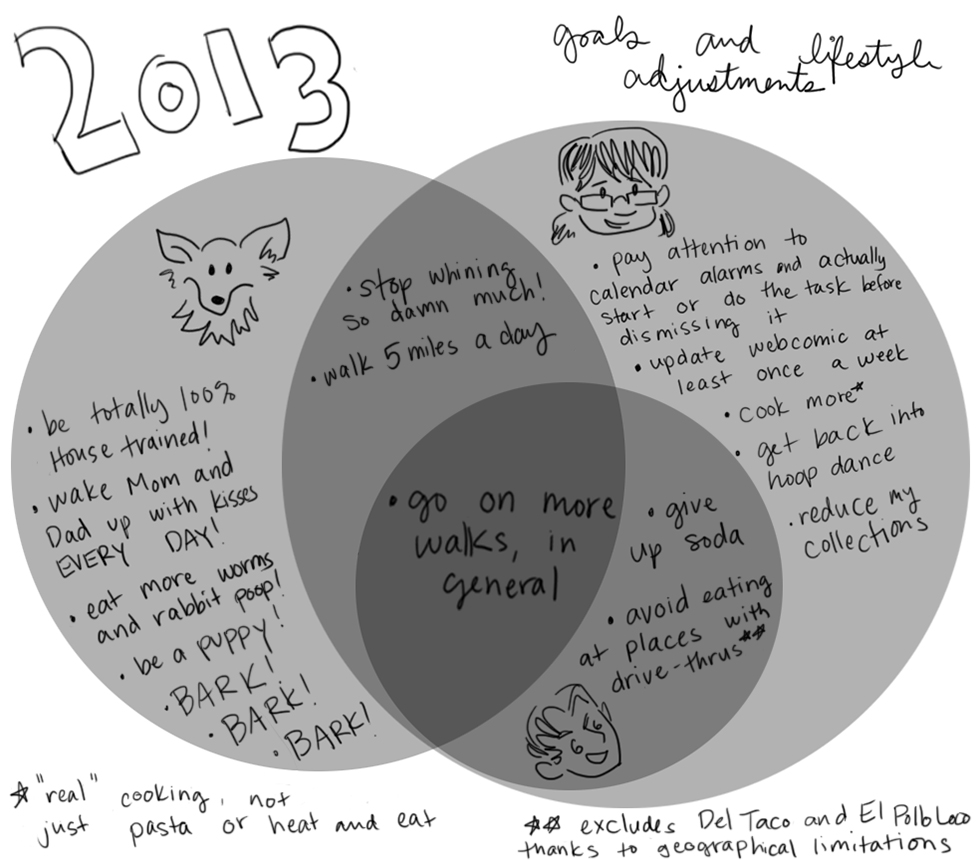 2013
goals and lifestyle
adjustments
• stop whining
so damn much!
• walk 5 miles a day
• pay attention to
calendar alarms and actually
start or do the task before
dismissing it
• update webcomic at
least once a week
• cook more*
• get back into
hoop dance
• reduce my
collections
• be totally 100%
House trained!
• wake Mom and
Dad up with kisses
EVERY DAY!
• eat more worms
and rabbit poop!
• be a puppy!
• BARK!
• BARK!
• BARK!
• go on more
walks, in
general
• give
up soda
• avoid eating
at places with
drive-thrus**
* "real" cooking, not
just pasta or heat and eat
** excludes Del Taco and El Pollo Loco
thanks to geographical limitations